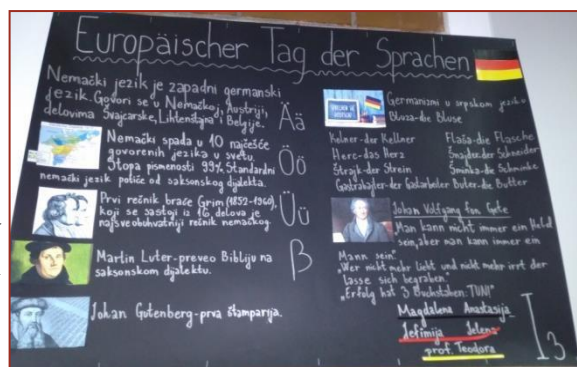 Europäischer Tag der Sprachen
Nemački jezik je zapadni germanski
jezik. Govori se u Nemačkoj, Austriji,
delovima Švajcarske, Lihtenštajna i Belgije.
Ää
Nemački spada u 10 najčešće
govorenih jezika u svetu.
Stopa pismenosti 99%. Standardni
nemački jezik potiče od saksonskog dijalekta.
Öö
Prvi rečnik braće Grim (1852-1960),
koji se sastoji iz 16 delova je
najsveobuhvatniji rečnik nemačkog.
Üü
Martin Luter-preveo Bibliju na
saksonskom dijalektu.
ß
Johan Gutenberg-prva štamparija.
Germanizmi u srpskom jeziku
Bluza-die Bluse
Kelner-der Kellner
Flaša-die Flasche
Herc-das Herz
Šnajder-der Schneider
Štrajk-der Strein
Šminka-die Schminke
Gastarbajter-der Gastarbeter
Buter-die Butter
Johan Volfgang fon Gete
„Man kann nicht immer ein Held
sein, aber man kann immer ein
Mann sein"
„Wer nicht mehr liebt und nicht mehr irrt der
lasse sich begraben."
„Erfolg hat 3 Buchstaben: TUN!"
Magdalena Anastasija
Jefimija Jelena
prof. Teodora
I3